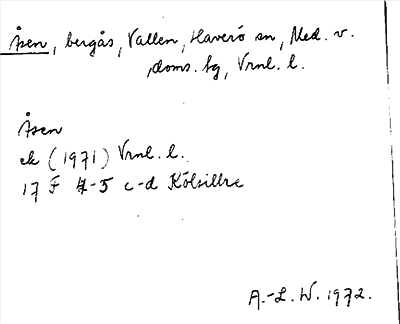 Åsen, bergås, Vallen, Haverö sn, Med. v.
doms. sg, Vrnl. l.
Åsen
ek (1971) Vrnl. l.
17 F 4-5 c-d Kölsillre
A.-L. W. 1972.